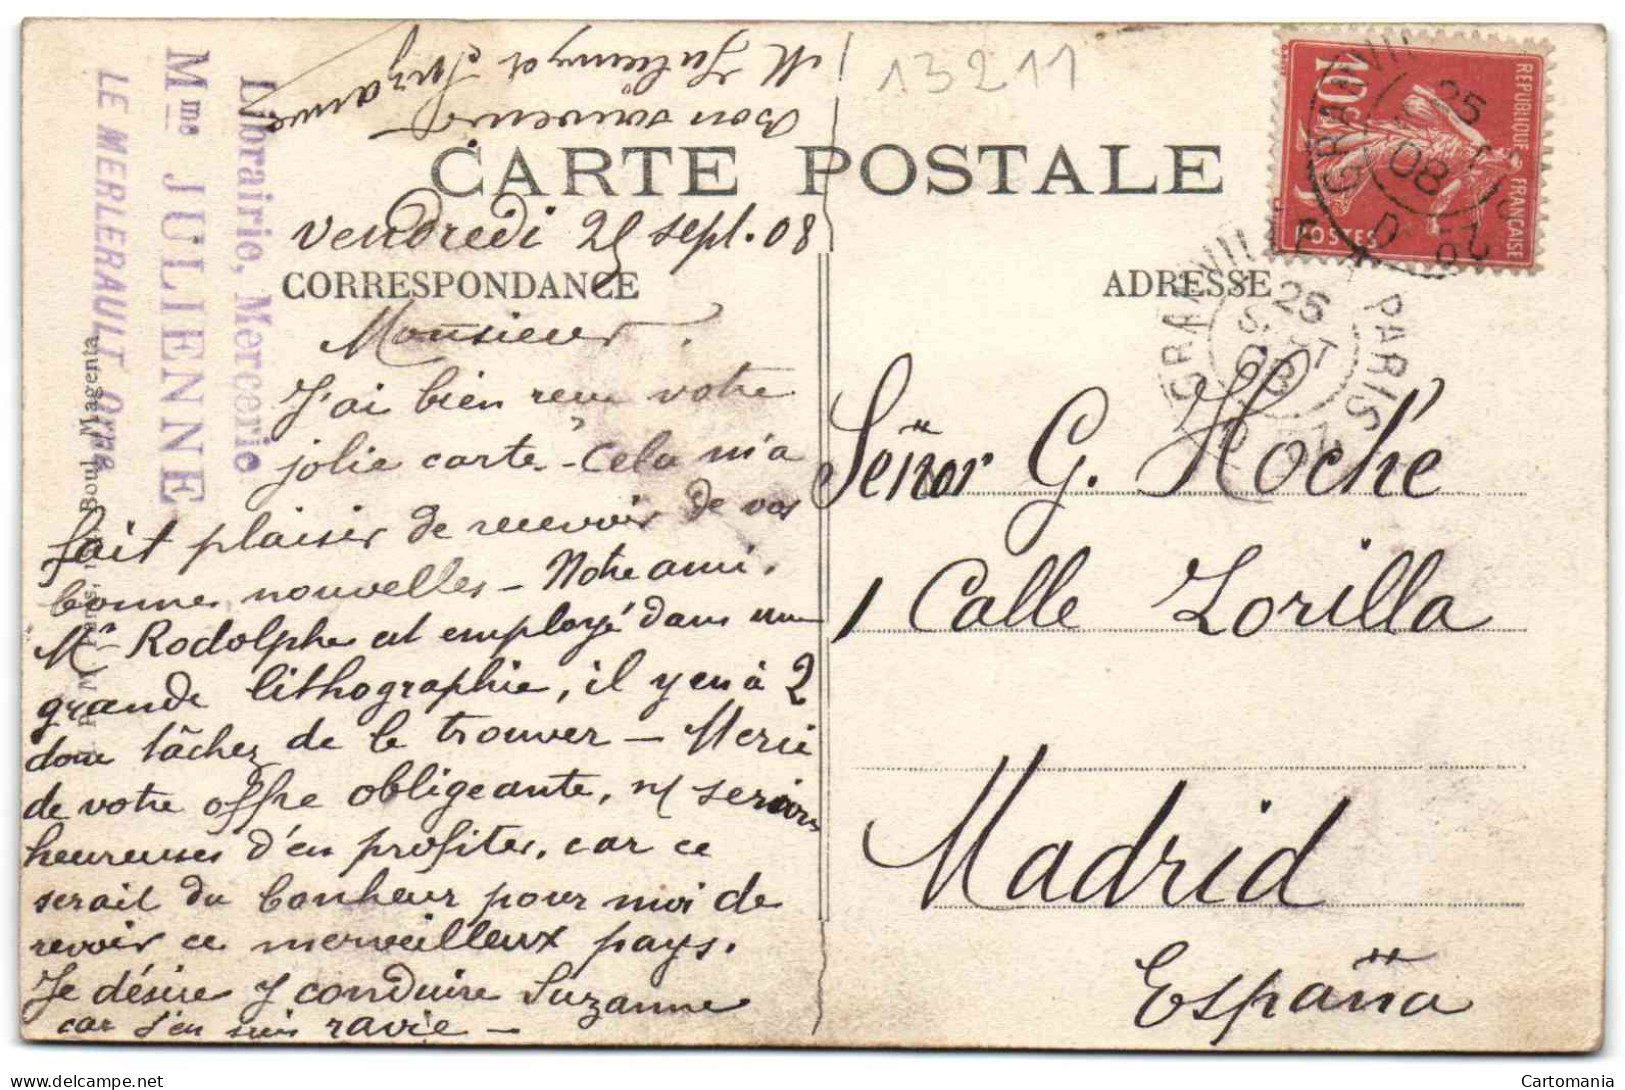 Bon souvenir
M Julienne et Suzanne
13211
CARTE POSTALE
Vendredi 25 sept. 08
CORRESPONDANCE
ADRESSE
Monsieur.
J'ai bien reçu votre
jolie carte - Cela m'a
fait plaisir de recevoir de vos
bonnes nouvelles - Notre ami,
Mr Rodolphe est employé dans une
grande lithographie, il y en à 2
donc tâchez de le trouver - Merci
de votre offre obligeante, ns serions
heureuses d'en profiter, car ce
serait du bonheur pour moi de
revoir ce merveilleux pays.
Je désire y conduire Suzanne
car j'en suis ravie -
Señor G. Hoché
1 Calle Zorilla
Madrid
España
Librairie, Mercerie
Mme JULIENNE
LE MERLERAULT Orne
Boul Magenta
REPUBLIQUE FRANÇAISE
10c
POSTES
GRANVILLE
25
08
GRANVILLE A PARIS
25
SEPT
08
Cartomania